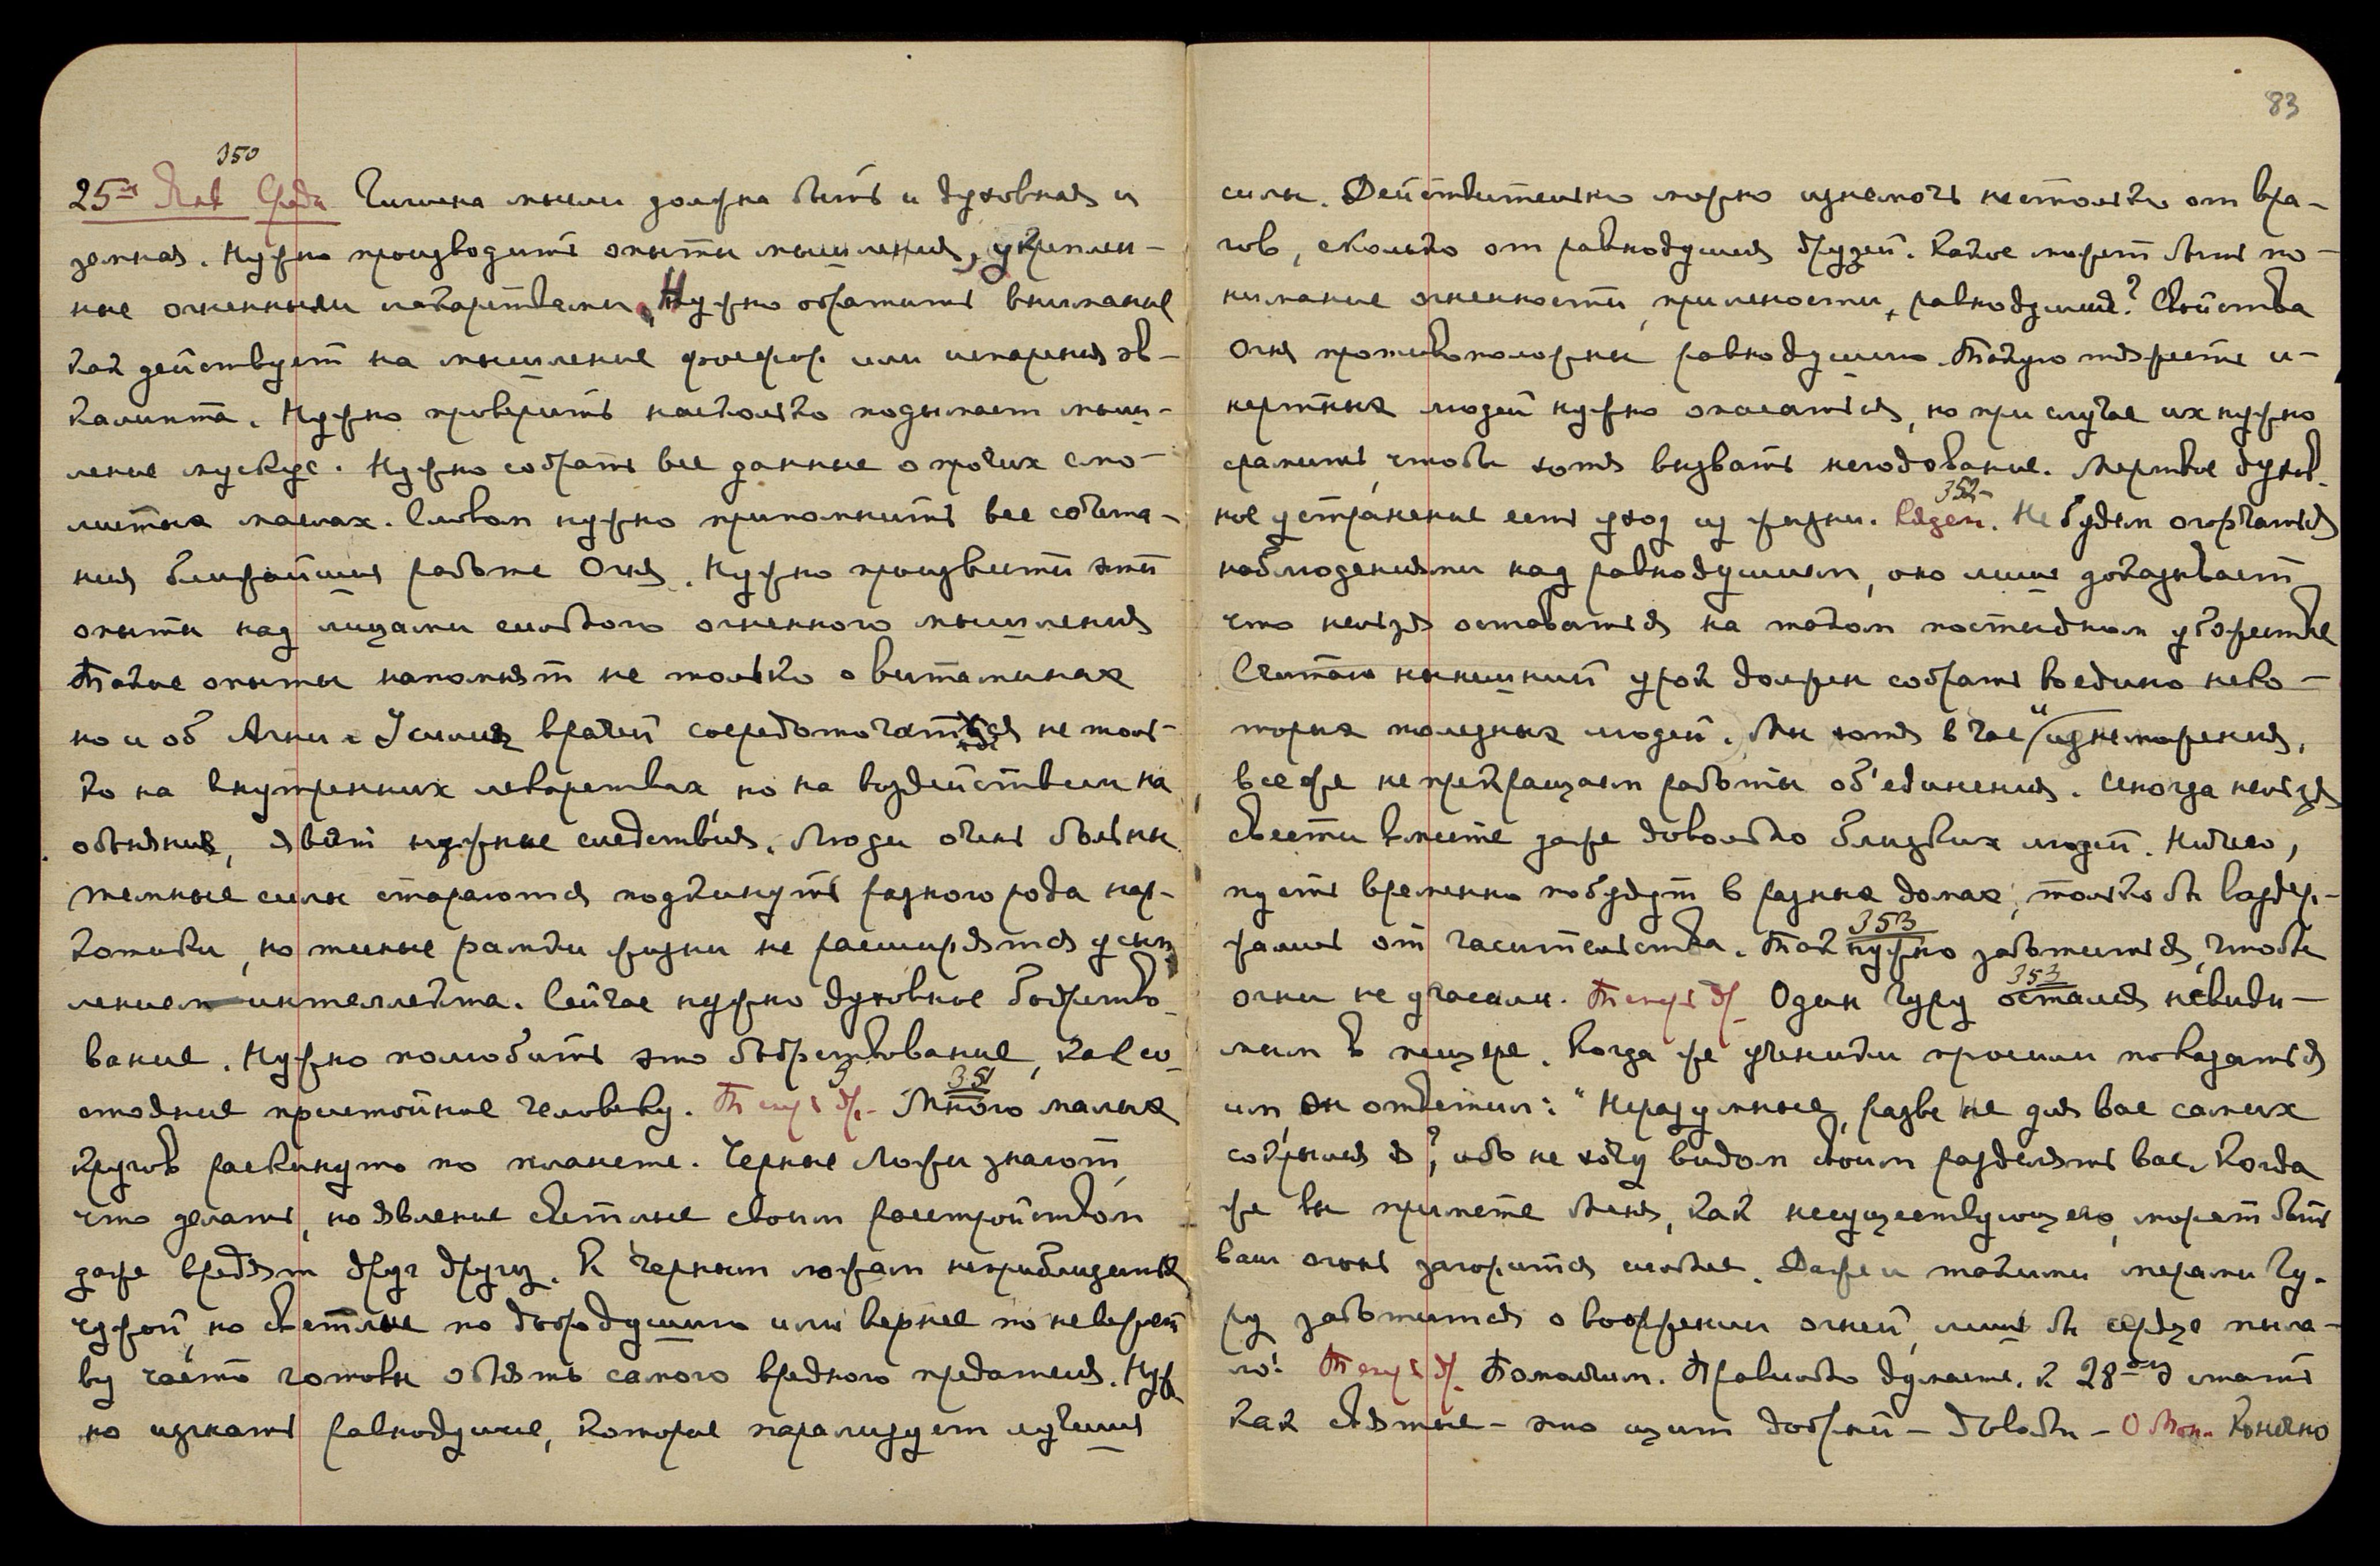 350
25ое Янв Среда Гигиена мысли должна быть и духовная и
земная. Нужно производить опыты мышления, укреплен-
ные огненными лекарствами. Нужно обратить внимание
как действует на мышление фосфор или испарения эв-
калипта. Нужно проверить насколько подымает мыш-
ление мускус. Нужно собрать все данные о прочих смо-
листых маслах. Словом нужно припомнить все сочета-
ния ближайшия работе Огня. Нужно произвести эти
опыты над лицами слабого огненного мышления
Такие опыты напомнят не только о витаминах
но и об Агни. Усилия врачей сосредоточатся не толь-
ко на внутренних лекарствах, но на воздействии на
обоняния, явят нужные следствия. Люди очень больны
темные силы стараются подкинуть разного рода нар-
котики, но тесные рамки жизни не расширятся усып
лением интеллекта. Сейчас нужно духовное бодрство-
вание. Нужно полюбить это бодрствование, как со-
стояние пристойное человеку.
351
Много малых
кругов раскинуто по планете. Черные Ложи знают,
что делать, но явление светлые своим расстройством
даже вредят друг другу. К черным ложам неприблизится
чужой, но светлые по добродушию или вернее по невежест
ву часто готовы обнять самого вредного предателя. Нуж
но изгнать равнодушие, которое парализует лучшия
83
силы. Действительно можно изнемочь нестолько от вра-
гов, сколько от равнодушия друзей. Какое может быть по-
нимание огненности, при лености, равнодушие? Свойства
Огня противоположны равнодушию. Такую тяжесть и-
нертных людей нужно опасаться, но при случае их нужно
срамить, чтобы хотя вызвать негодование. Мертвое духов-
352
ное устранение есть уход из жизни. Не будем огорчаться
наблюдениями над равнодушием, оно лишь доказывает
что нельзя оставаться на таком постыдном убожестве
Считаю нынешний урок должен собрать воедино неко-
торых полезных людей. Мы хотя в час изнеможения,
все же не прекращаем работы об'единения. Иногда нельзя
свести вместе даже довольно близких людей. Ничего,
пусть временно побудут в разных домах, только бы воздер-
353
жались от гасительства. Так нужно заботиться, чтобы
353
огни не угасали. Один Гуру остался невиди-
мым в пещере. Когда же ученики просили показаться
им, он ответил: "Неразумные, разве не для вас самих
сокрылся я?, ибо не хочу видом своим разделять вас. Когда
же вы примете Меня, как несуществующего, может быть
ваш огонь загорится сильнее. Даже и такими мерами Гу-
ру заботится о возжжении огней, лишь бы сердце пыла-
ло! Помолчим. Правильно думаете. К 28 стать
как святые - это щит добрый - довольно - О Мон. Конечно